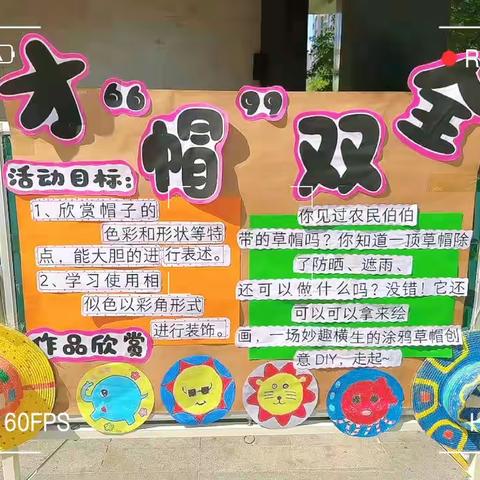 才“帽”双全
活动目标:
1、欣赏帽子的
色彩和形状等特
点，能大胆的进行表述。
2、学习使用相
似色以彩角形式
进行装饰。
作品欣赏
你见过农民伯伯
带的草帽吗？你知道一顶草帽除
了防晒、遮雨、
还可以做什么吗？没错！它还
可以可以拿来绘
画，一场妙趣横生的涂鸦草帽创
意DIY，走起~
60FPS